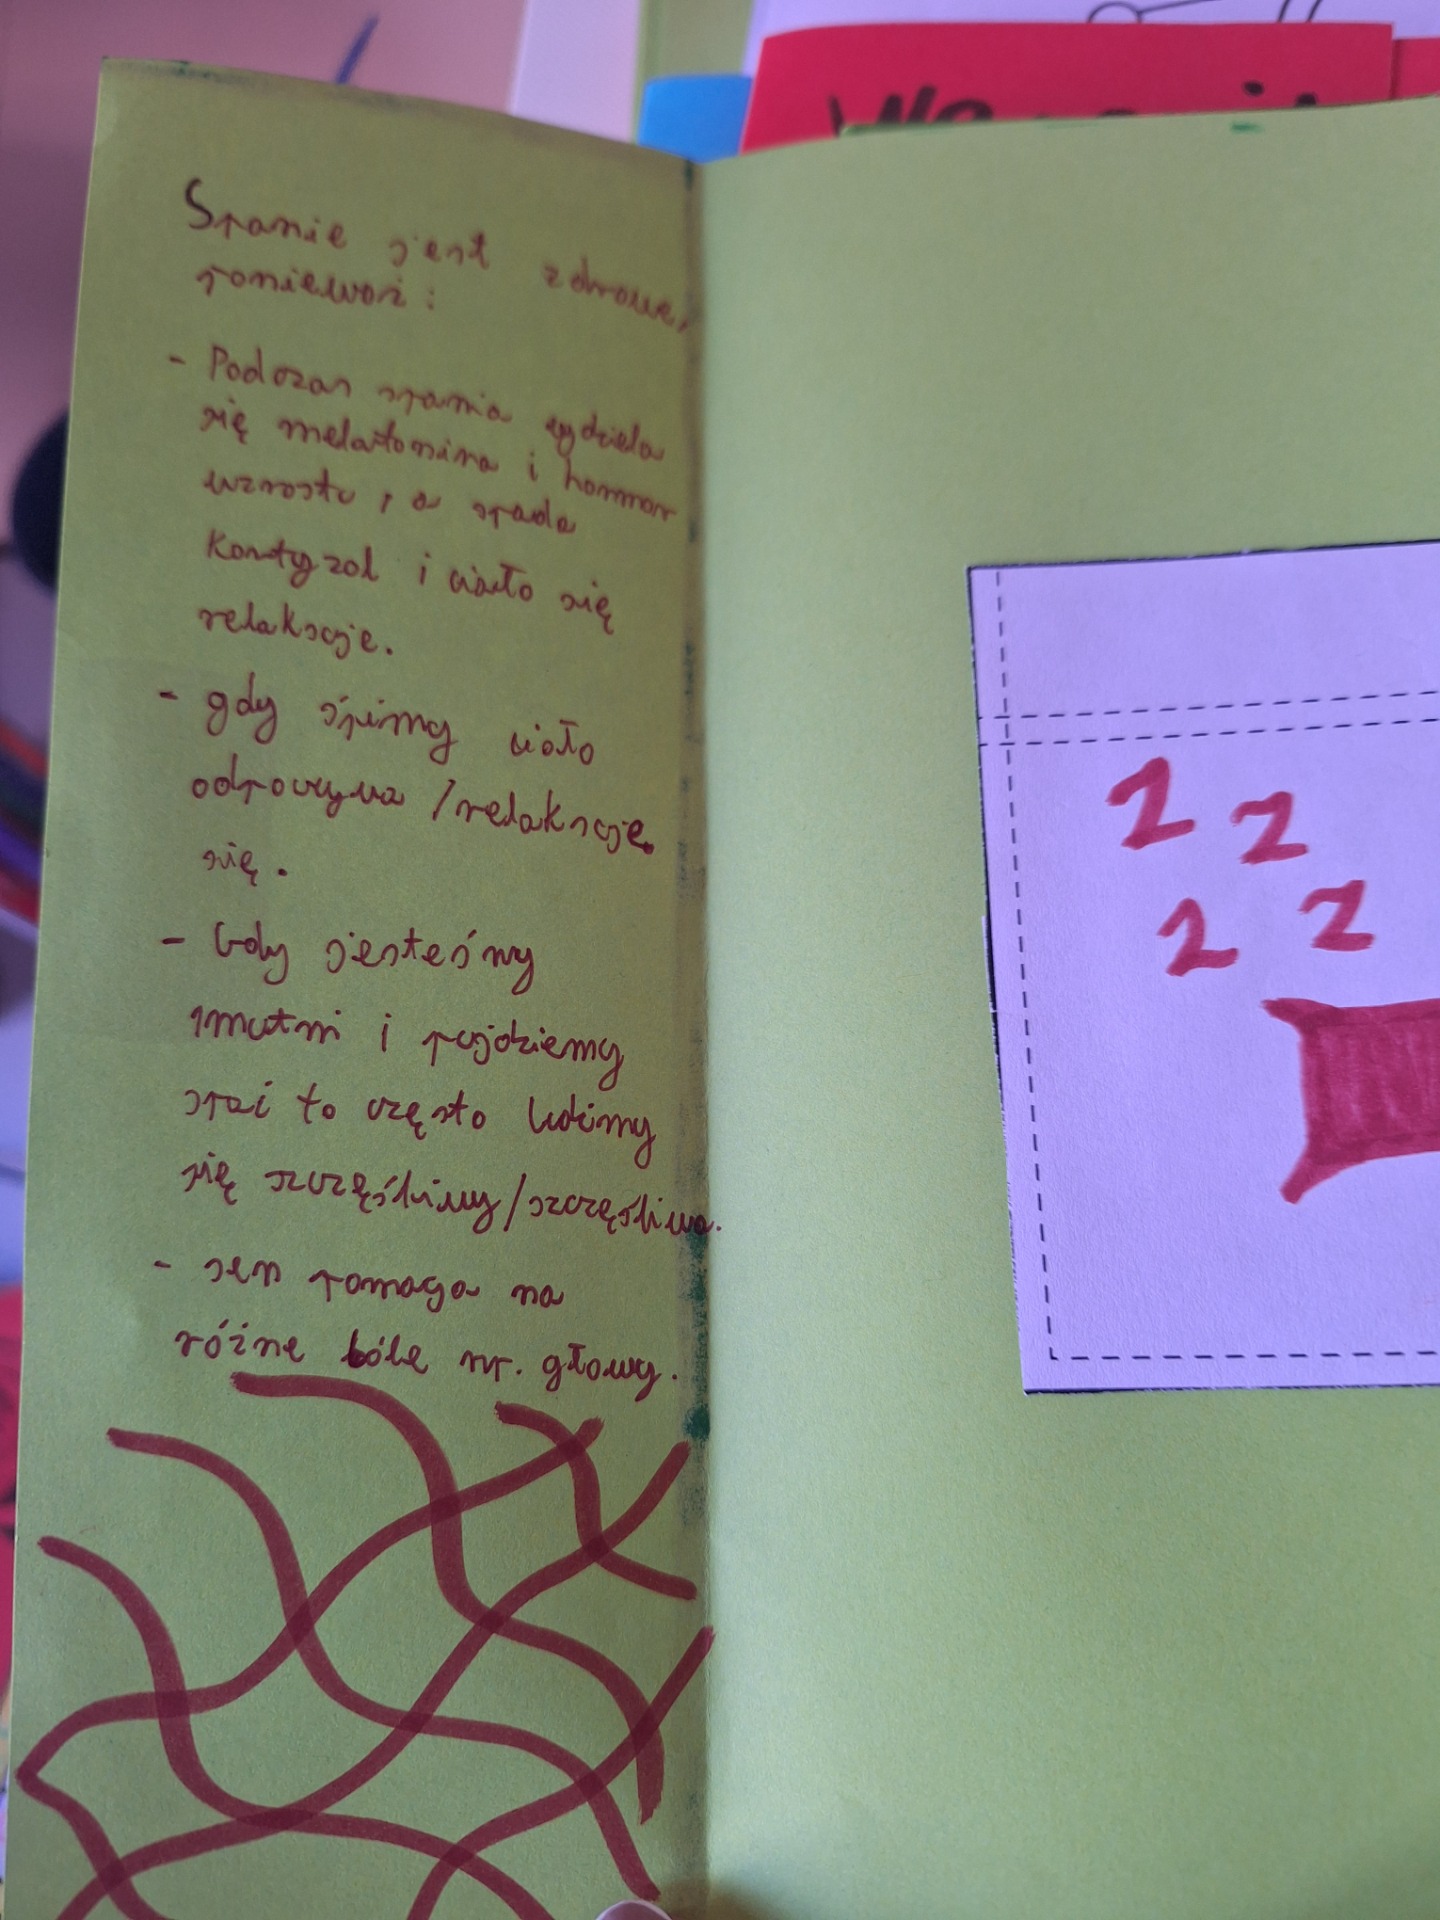 Spanie jest zdrowe,
ponieważ:
- Podczas spania wydziela
się melatonina i hormon
wzrostu, a spada
Kortyzol i ciało się
relaksuje.
- gdy śpimy ciało
odpoczywa / relaksuje
się.
- Gdy jesteśmy
smutni i pójdziemy
spać to często budzimy
się szczęśliwy/szczęśliwa.
- sen pomaga na
różne bóle np. głowy.
z z
z z